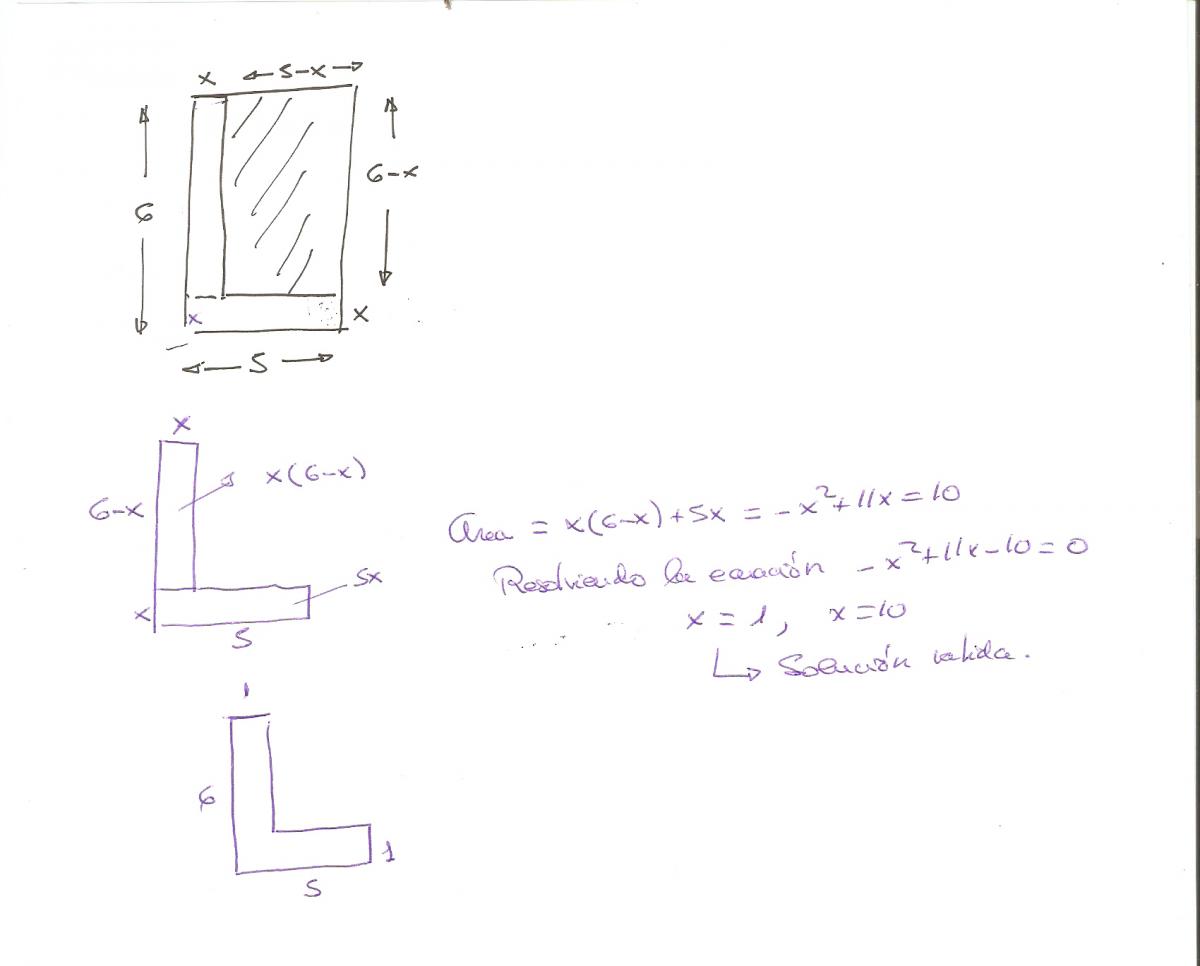 x 5-x
6
6-x
x
x
5
x
6-x
x(6-x)
x
5x
5
Area = x(6-x)+5x = -x²+11x=10
Resolviendo la ecuación -x²+11x-10=0
x=1, x=10
↳ Solución valida.
1
6
1
5